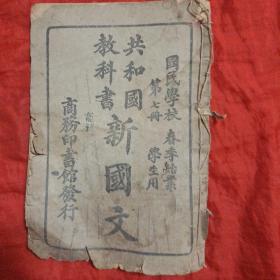 國民學校 春季始業
第七冊 學生用
共和國
教科書
新國文
商務印書館發行